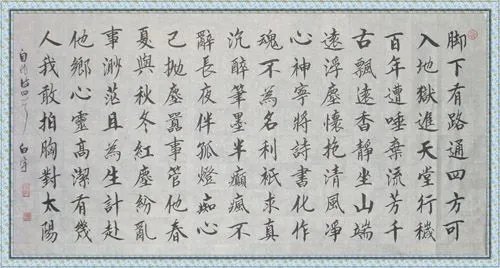 脚下有路通四方可
入地獄進天堂行穢
百年遭唾棄流芳千
古飄遠香靜坐山端
遠浮塵懷抱清風淨
心神寧將詩書化作
魂不為名利祇求真
沉醉筆墨半癲瘋不
辭長夜伴孤燈痴心
己拋塵囂事管他春
夏與秋冬紅塵紛亂
事渺茫且為生計赴
他鄉心靈高潔有幾
人我敢拍胸對太陽